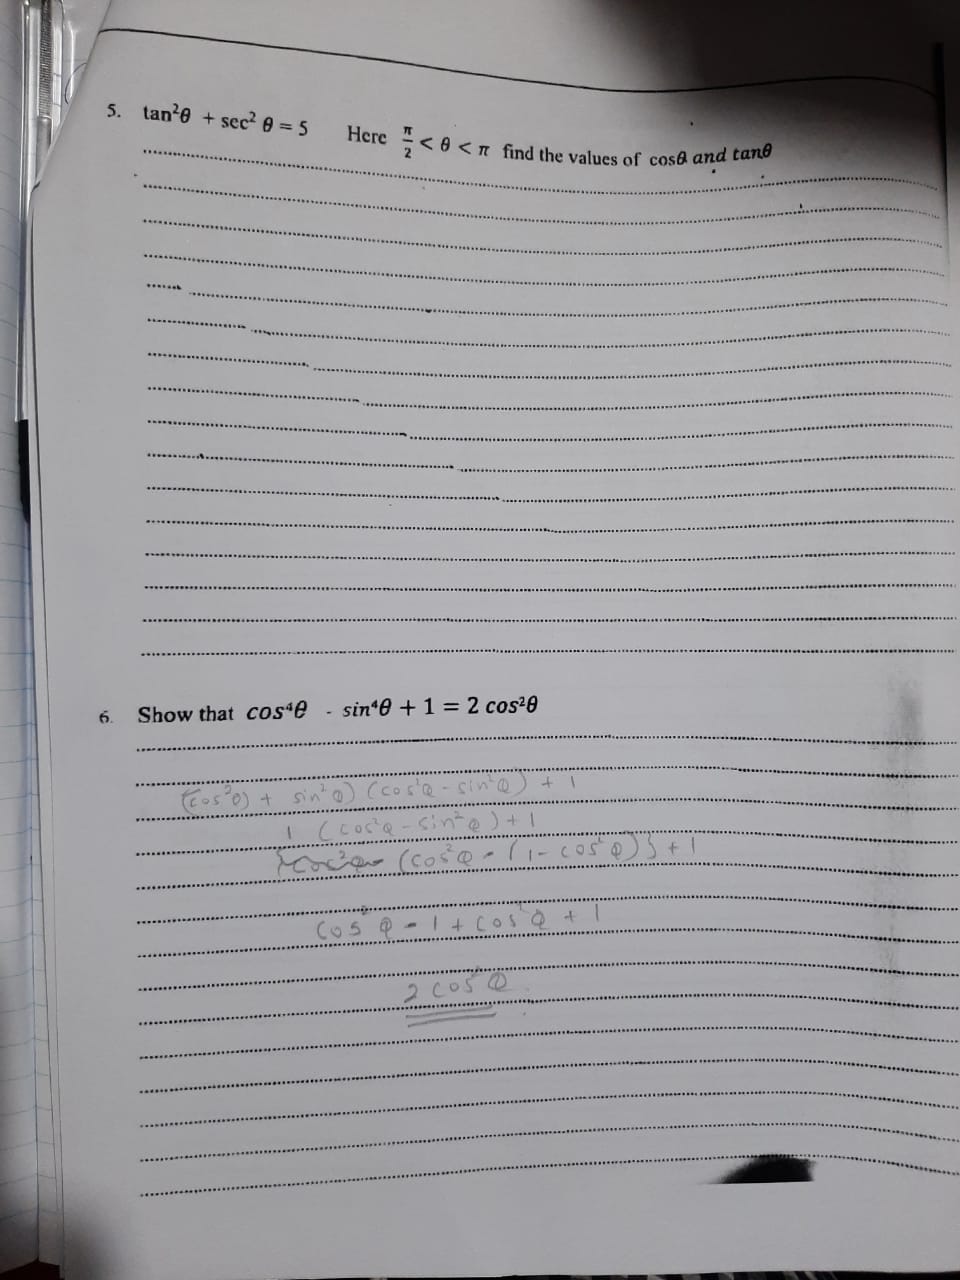 5. tan²θ + sec² θ = 5 Here π/2 < θ < π find the values of cosθ and tanθ
6. Show that cos⁴θ - sin⁴θ + 1 = 2 cos²θ
(cos²θ) + sin²θ) (cos²θ - sin²θ) + 1
1 (cos²θ - sin²θ) + 1
(cos²θ - (1 - cos²θ)} + 1
cos²θ - 1 + cos²θ + 1
2 cos²θ